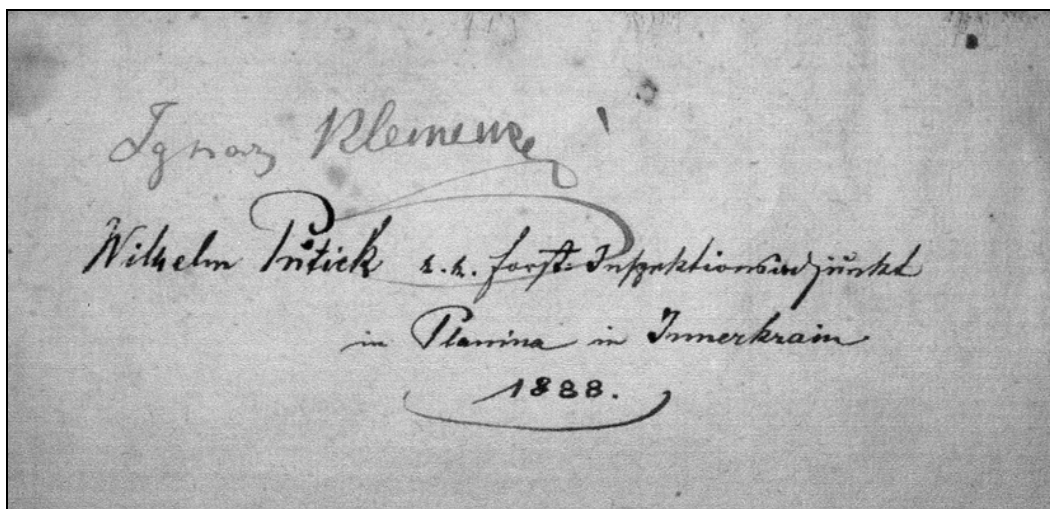 Ignaz Klemenc
Wilhelm Putick k.k. forst: Inspektionsadjunkt
in Planina in Innerkrain
1888.